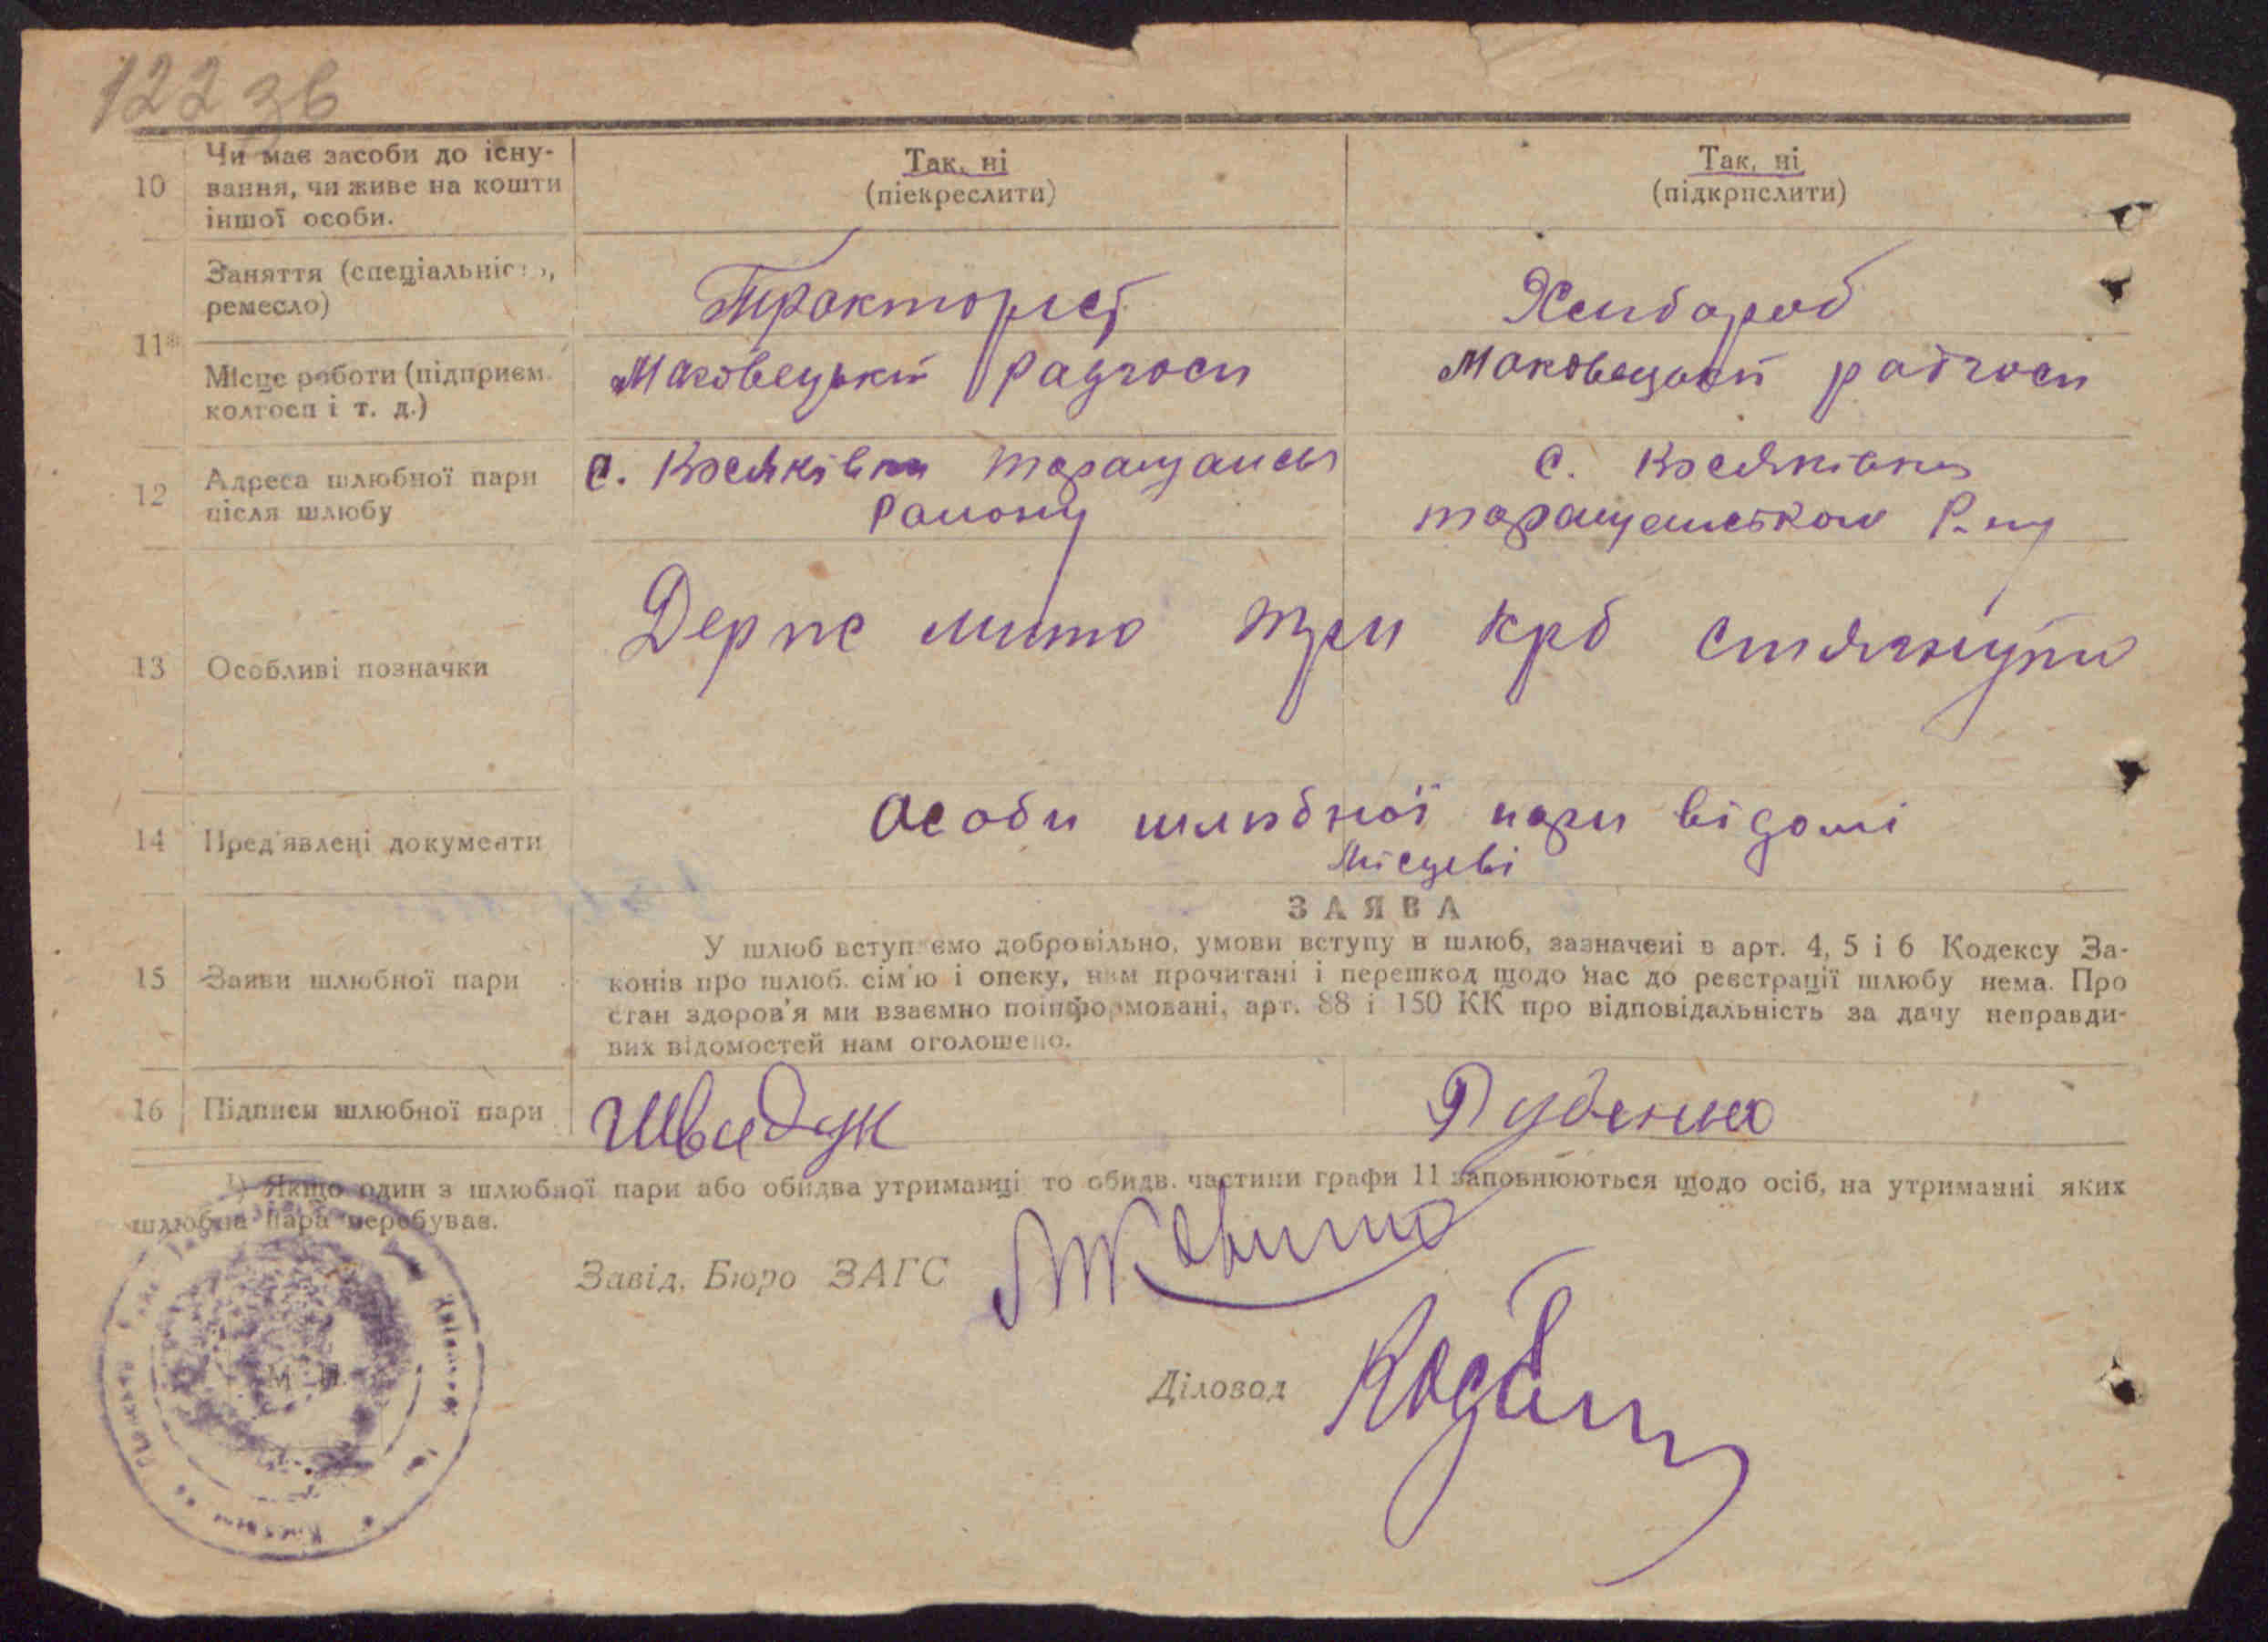 122 зв
10 Чи має засоби до існу-
вання, чи живе на кошти
іншої особи.
Так, ні
(піекреслити)
Так, ні
(підкрпслити)
11* Заняття (спеціальність,
ремесло)
Тракторист
Хлибороб
Місце роботи (підприєм.
колгосп і т. д.)
Маковецький радгосп
Маковецький радгосп
12 Адреса шлюбної пари
після шлюбу
с. Косяківка Таращанськ
Району
с. Косяківка
Таращанського Р-ну
13 Особливі позначки
Держ мито три крб стягнуто
14 Пред'явлені документи
Особи шлюбної пари відомі
Місцеві
ЗАЯВА
15 Заяви шлюбної пари
У шлюб вступаємо добровільно, умови вступу в шлюб, зазначені в арт. 4, 5 і 6 Кодексу За-
конів про шлюб, сім'ю і опеку, нам прочитані і перешкод щодо нас до реєстрації шлюбу нема. Про
стан здоров'я ми взаємно поінформовані, арт. 88 і 150 КК про відповідальність за дачу неправди-
вих відомостей нам оголошено.
16 Підписи шлюбної пари
Швидук
¹) Якщо один з шлюбної пари або обидва утриманці то обидв. частини графи 11 заповнюються щодо осіб, на утриманні яких
шлюбна пара перебуває.
Завід. Бюро ЗАГС
Діловод
М. П.